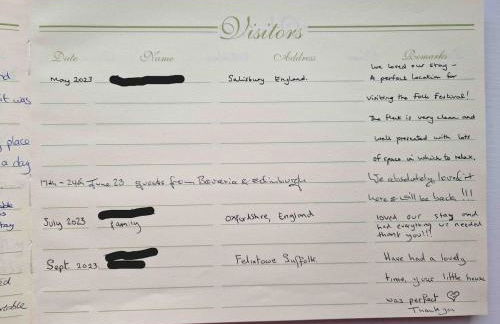 Visitors
Date Name Address Remarks
We loved our stay -
May 2023 Salisbury England. A perfect location for
visiting the Folk Festival!
The flat is very clean and
well presented with lots
of space in which to relax.
17th - 24th June 23 guests from Bavaria & Edinburgh We absolutely loved it
here & will be back !!!
July 2023 family Oxfordshire, England loved our stay and
had everything we needed
thank you!!!
Sept. 2023 Felixtowe Suffolk. Have had a lovely
time, your little house
was perfect ♡
Thank you
nd
it was
place
a day